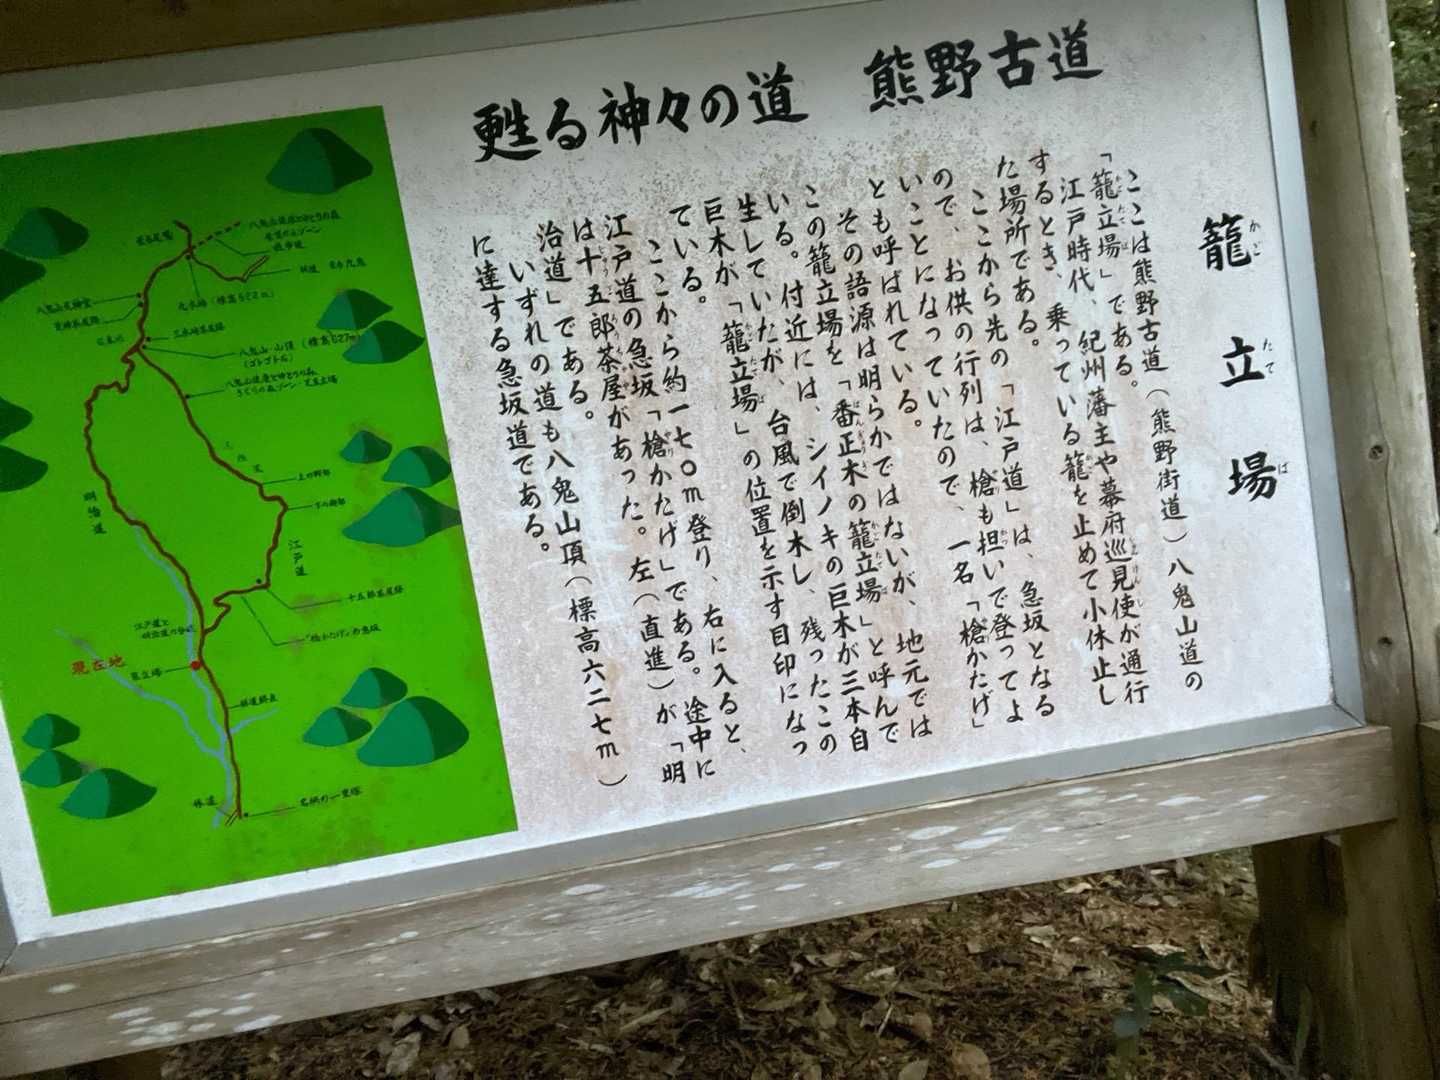 甦る神々の道　熊野古道
籠立場
かご
たて
ば
ここは熊野古道（熊野街道）八鬼山道の
「籠立場」である。
かごたてば
江戸時代、紀州藩主や幕府巡見使が通行
するとき、乗っている籠を止めて小休止し
た場所である。
ここから先の「江戸道」は、急坂となる
ので、お供の行列は、槍も担いで登ってよ
いことになっていたので、一名「槍かたげ」
とも呼ばれている。
その語源は明らかではないが、地元では
この籠立場を「番正木の籠立場」と呼んで
いる。付近には、シイノキの巨木が三本自
生していたが、台風で倒木し、残ったこの
巨木が「籠立場」の位置を示す目印になっ
ている。
ここから約一七〇m登り、右に入ると、
江戸道の急坂「槍かたげ」である。途中に
は十五郎茶屋があった。左（直進）が「明
治道」である。
いずれの道も八鬼山頂（標高六二七m）
に達する急坂道である。
林道
九木峠（標高522m）
三木峠茶屋跡
荒神茶屋跡
八鬼山・山頂（標高627m）
上の
明治道
江戸道
十五郎茶屋跡
「槍かたげ」の急坂
江戸道と
明治道の分岐
現在地
籠立場
林道終点
林道
名柄の一里塚